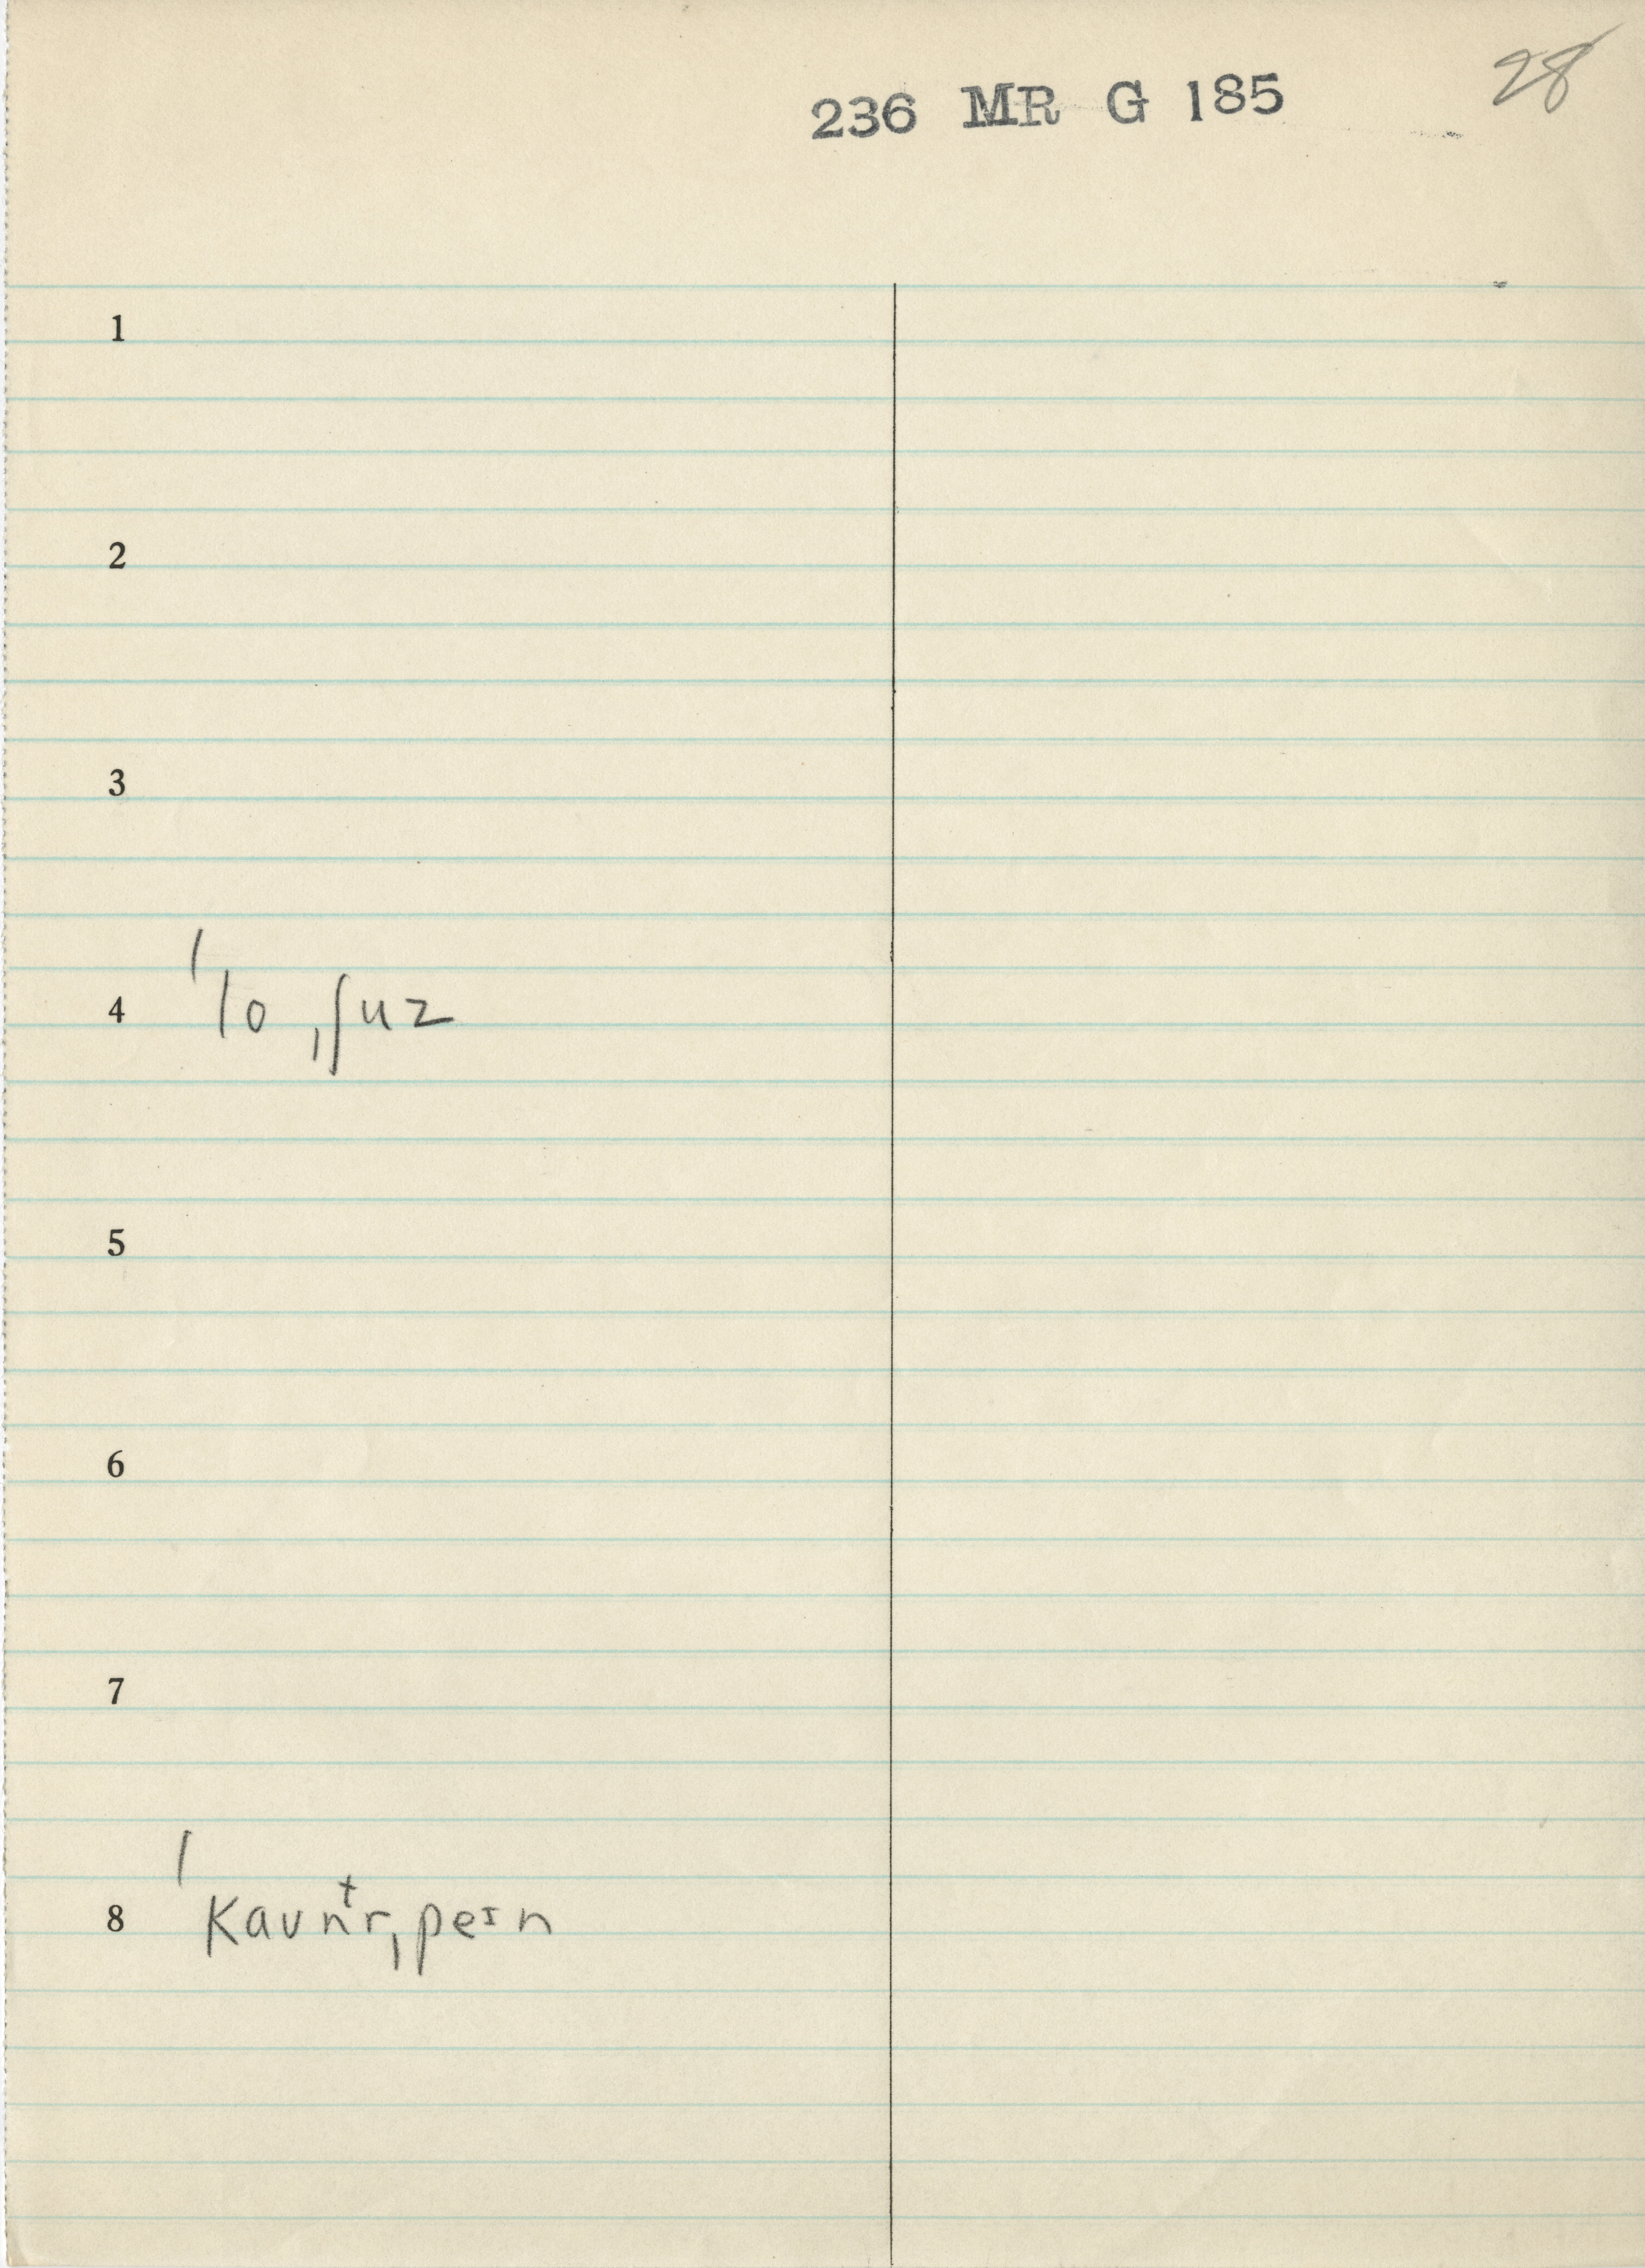 236 MR G 185
28
1
2
3
4 ˈlo ˌʃuz
5
6
7
8 ˈkaʊnᵗr ˌpeᶦn